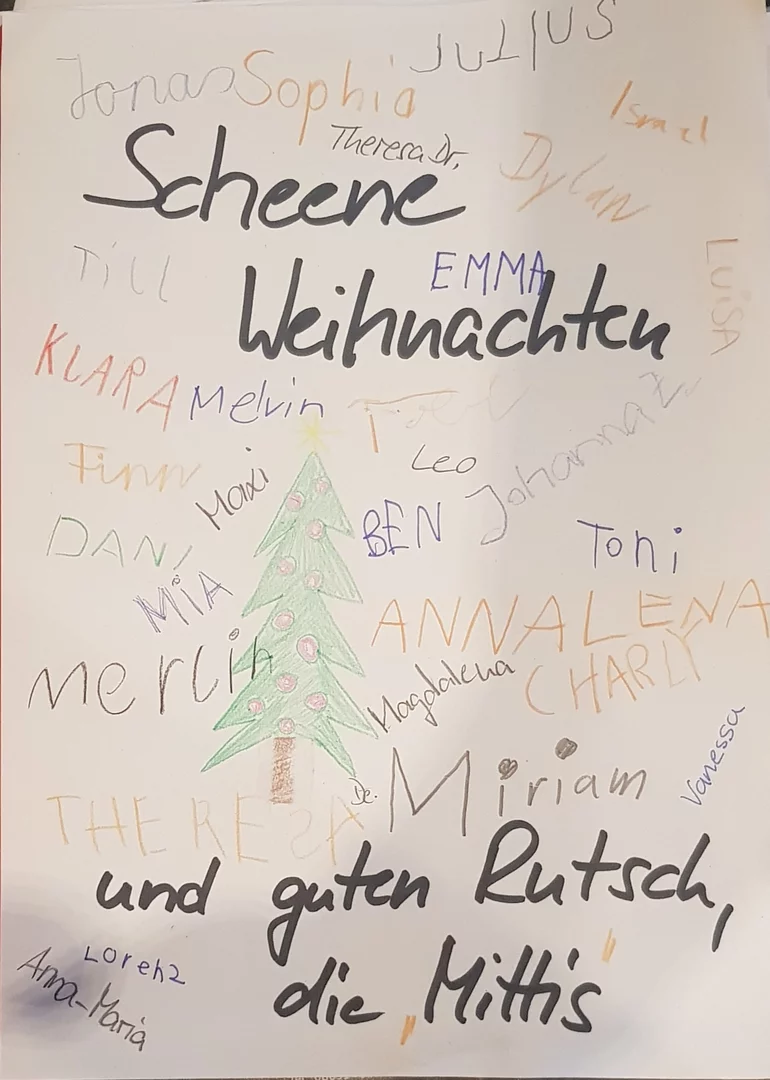 JULIUS
Jonas Sophia
Israel
Theresa Dr.
Dylan
Scheene
Till
EMMA
LUiSA
Weihnachten
KLARA Melvin
Johanna Z.
Finn
Leo
Maxi
BEN
Toni
DANI
MiA
ANNALENA
Merlin
CHARLY
Magdalena
Vanessa
De. Miriam
THERESA
und guten Rutsch,
Lorenz
Anna-Maria
die "Mitti's"